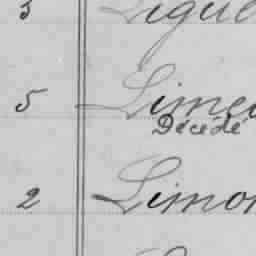 3 Ligue
5 Limea
Décédé
2 Limon